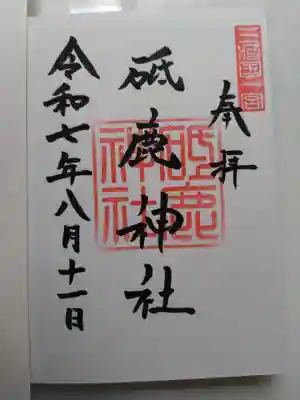 三河國一宮
奉拝
砥鹿神社
砥鹿神社
令和七年八月十一日